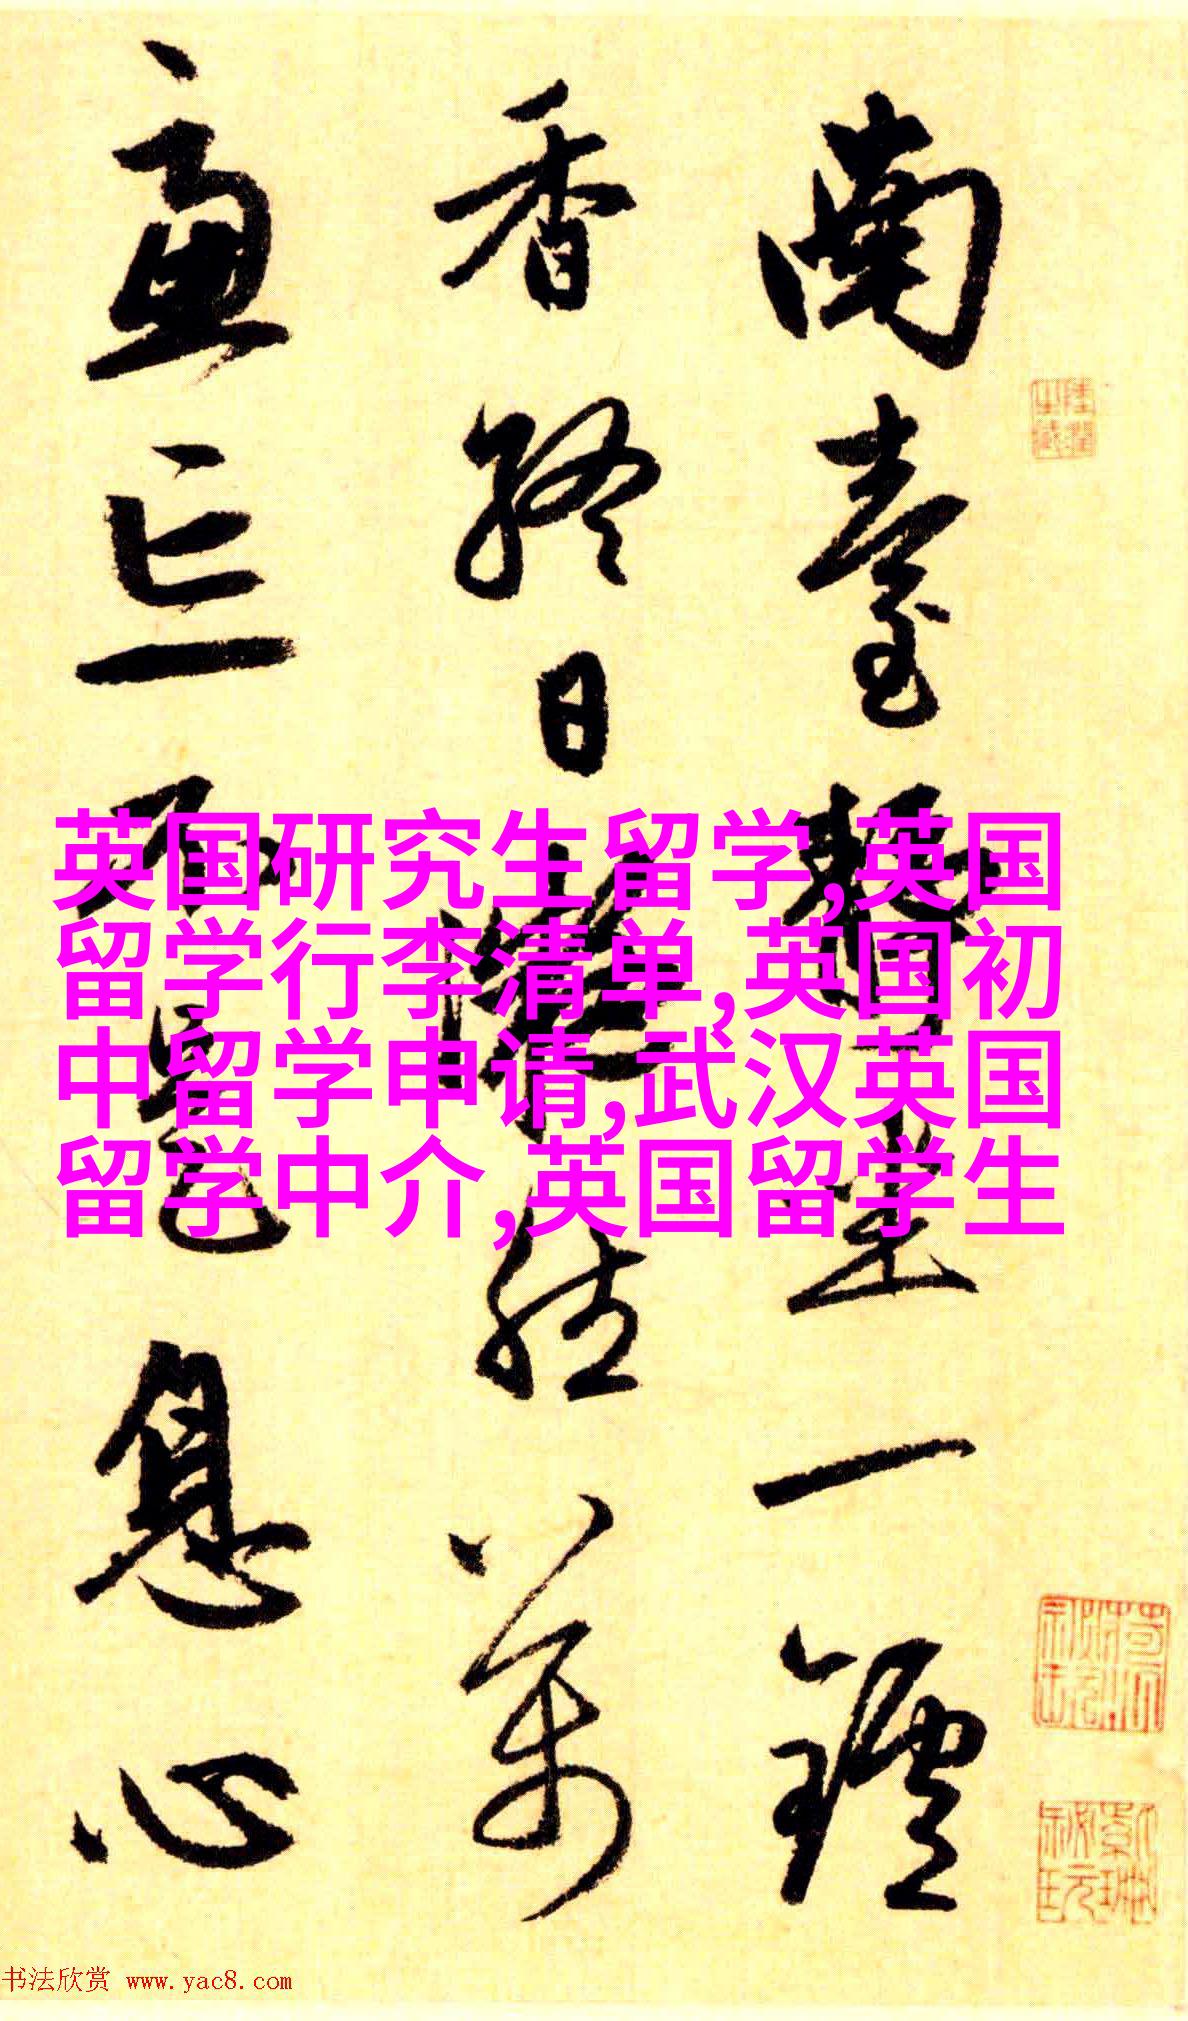 南臺靜坐一爐
香終日凝然萬
慮亡不是息心
英国研究生留学,英国
留学行李清单,英国初
中留学申请,武汉英国
留学中介,英国留学生
书法欣赏 www.yac8.com